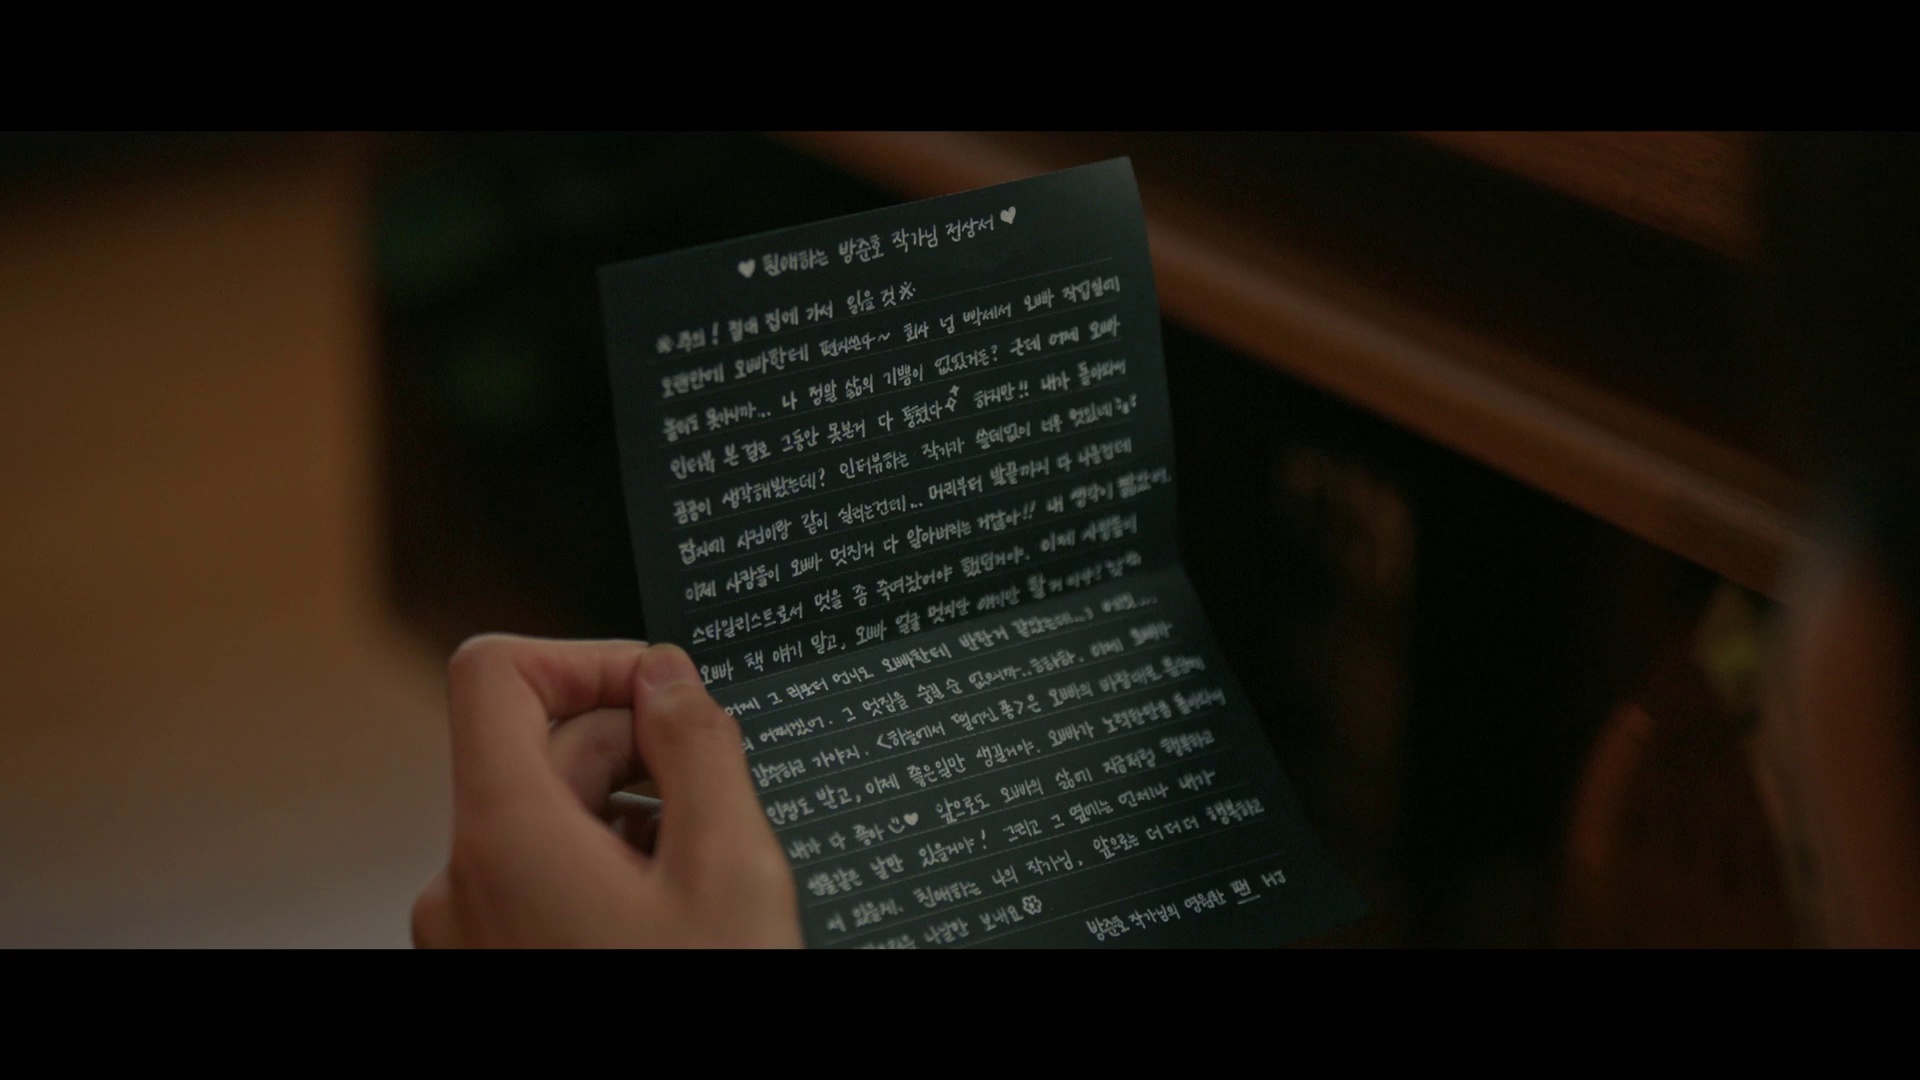 ♥ 친애하는 방준호 작가님 전상서 ♥
※주의! 절대 집에 가서 읽을 것※
오랜만에 오빠한테 편지쓴다~ 회사 넘 빡세서 오빠 작업실에
놀러도 못가니까... 나 정말 삶의 기쁨이 없었거든? 근데 어제 오빠
인터뷰 본 걸로 그동안 못본거 다 퉁쳤다 하지만!! 내가 돌아와서
곰곰이 생각해봤는데? 인터뷰하는 작가가 쓸데없이 너무 멋있네
잡지에 사진이랑 같이 실리는건데... 머리부터 발끝까지 다 나올텐데
이제 사람들이 오빠 멋진거 다 알아버리는거잖아!! 내 생각이 짧았어.
스타일리스트로서 멋을 좀 죽여놨어야 했던거야. 이제 사람들이
오빠 책 얘기 말고, 오빠 얼굴 멋지단 얘기만 할거
어제 그 리포터 언니도 오빠한테 반한거 같았는데...)
어쩌겠어. 그 멋짐을 숨길 순 없으니까..흐하하. 이제 오빠가
감수하고 가야지. <하늘에서 떨어진 >은 오빠의 바람대로
인정도 받고, 이제 좋은일만 생길거야. 오빠가 노력한만큼 돌아와서
내가 다 좋아 ♥ 앞으로도 오빠의 삶에 지금처럼 행복하고
선물같은 날만 있을거야! 그리고 그 옆에는 언제나 내가
서 있을게. 친애하는 나의 작가님, 앞으로는 더 더 더 행복하고
나날만 보내요
방준호 작가님의 영원한 팬 HJ